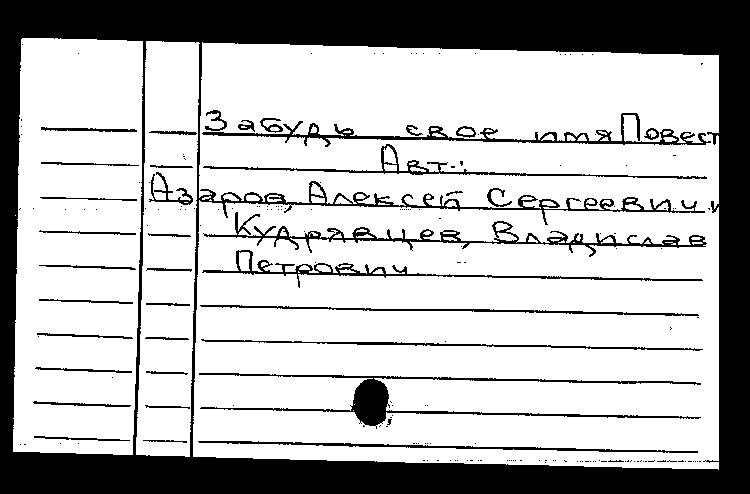 Забудь свое имя Повест
Авт.:
Азаров, Алексей Сергеевич и
Кудрявцев, Владислав
Петрович